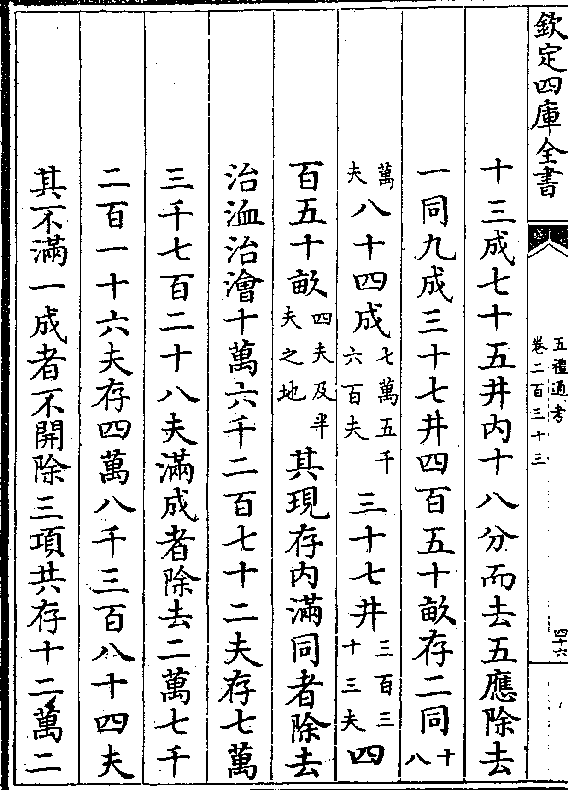 欽定四庫全書
五禮通考
卷二百三十三
四十六
十三成七十五井内十八分而去五應除去
一同九成三十七井四百五十畝存二同十八
萬夫八十四成七萬五千六百夫三十七井三百三十三夫四
百五十畝四夫及半夫之地其現存内滿同者除去
治洫治澮十萬六千二百七十二夫存七萬
三千七百二十八夫滿成者除去二萬七千
二百一十六夫存四萬八千三百八十四夫
其不滿一成者不開除三項共存十二萬二